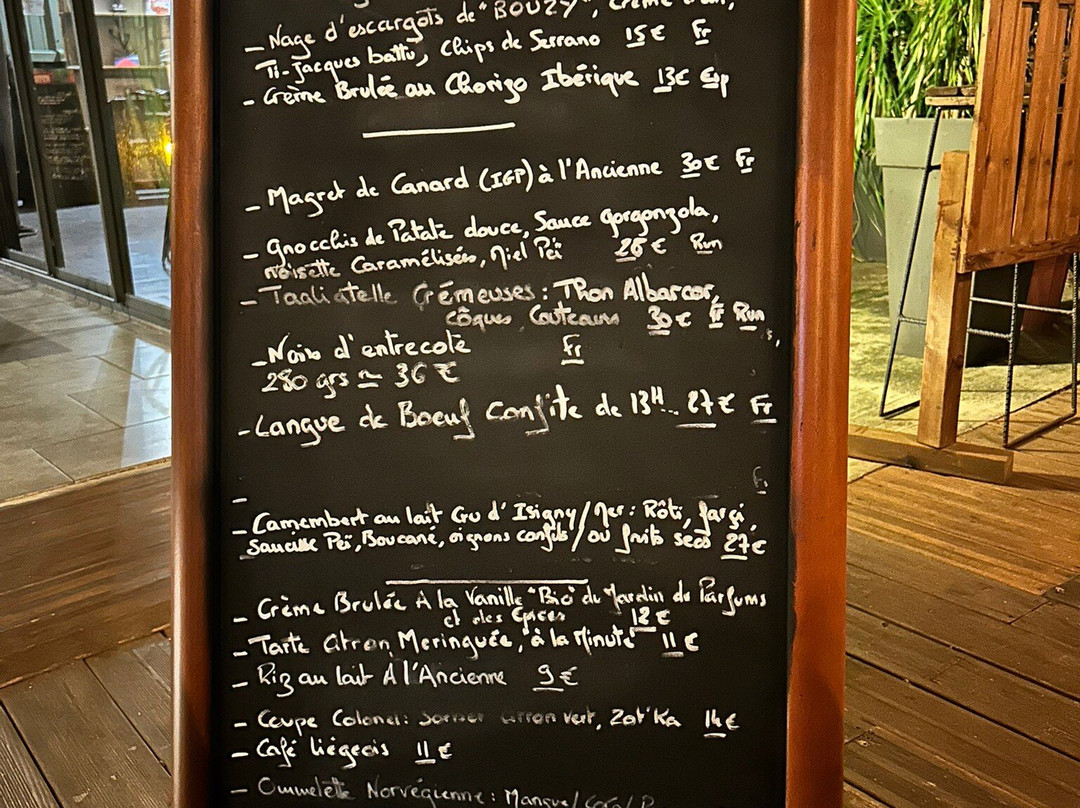 - Nage d'escargots de "BOUZY", Crème
Ti-Jacques battu, Chips de Serrano 15€ Fr
- Crème Brulée au Chorizo Ibérique 13€ Esp
- Magret de Canard (IGP) à l'Ancienne 30€ Fr
- Gnocchis de Patate douce, Sauce gorgonzola,
noisette Caramélisées, Miel Péï 26€ Run
- Tagliatelle Crémeuses: Thon Albacor,
côques, Couteaux 30€ Fr Run
- Noix d'entrecote Fr
280 grs ≃ 36€
- Langue de Boeuf Confite de 13H... 27€ Fr
-
- Camembert au lait Cru d'Isigny/Mer: Rôti, farçi,
Saucisse Peï, Boucané, oignons confits / ou fruits secs 27€
- Crème Brulée A la Vanille "Bio" du Jardin des Parfums
et des Epices 12€
- Tarte Citron Meringuée, "à la Minute" 11€
- Riz au lait A l'Ancienne 9€
- Coupe Colonel: Sorbet citron vert, Zot'Ka 14€
- Café liégeois 11€
- Ommelette Norvégienne: Mangue/Coco/P